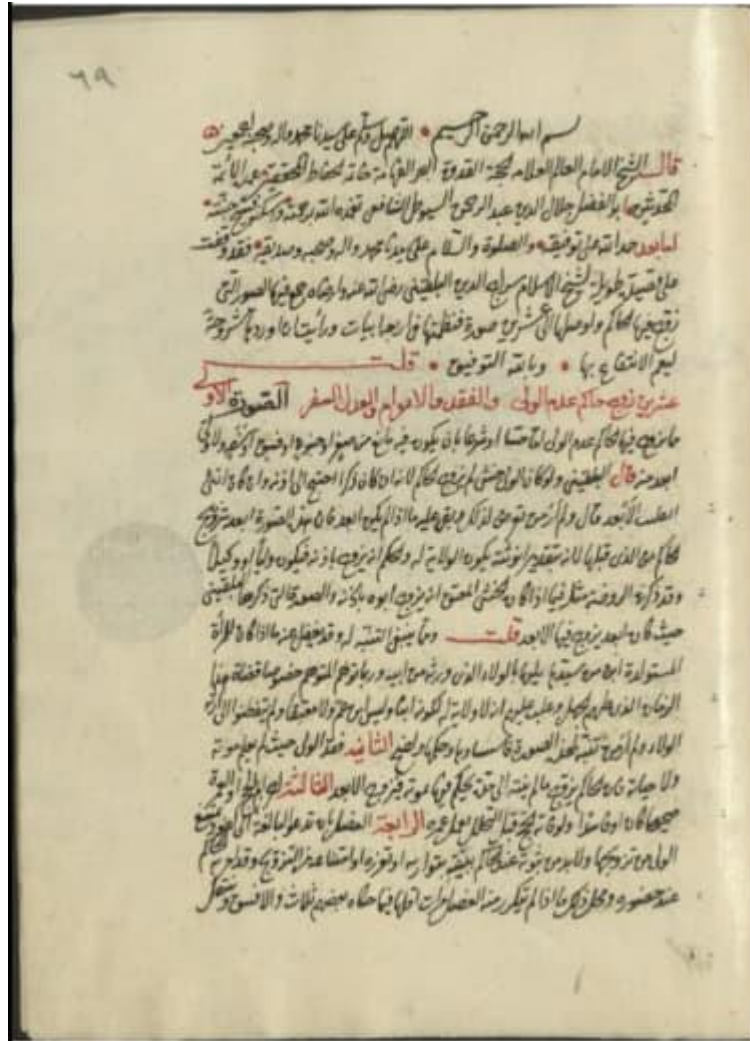 ٦٩
بسم الله الرحمن الرحيم • اللهم صل وسلم على سيدنا محمد وآله وصحبه اجمعين
قال الشيخ الامام العالم العلامة الحجة القدوة البحر الفهامة خاتمة الحفاظ المحققين عمدة الائمة
المحدثين ابو الفضل جلال الدين عبد الرحمن السيوطي الشافعي تغمده الله برحمته واسكنه فسيح جنته
اما بعد حمد الله على توفيقه • والصلوة والسلام على سيدنا محمد واله وصحبه وصديقه • فقد وقفت
على قصيدة طويلة لشيخ الاسلام سراج الدين البلقيني رضي الله عنه وارضاه جمع فيها الصور التي
يزوج فيها الحاكم واوصلها الى عشرين صورة فنظمتها في اربعة ابيات ورأيت ان اوردها مشروحة
ليعم الانتفاع بها • وبالله التوفيق • قلت
عشرين زوج حاكم عدم الولي والفقد والاحرام والعضل السفر الصورة الاولى
مما يزوج فيها الحاكم عدم الولي اما حسا او شرعا بان يكون فيه مانع من صغر او جنون او فسق او كفر ولا ولي
ابعد منه قال البلقيني ولو كان الولي خنثى لم يزوج الحاكم لانه ان كان ذكرا احتيج الى اذنه وان كان انثى
الابعد قال ولم ار من تعرض لذلك بقي عليه ما اذا لم يكن ابعد فان هذه الصورة ابعد تزويج
الحاكم من الذي قبلها لانه بتقدير انوثته يكون الولاية له وللحاكم ان يزوج باذنه فيكون وليا او وكيلا
وقد ذكر في الروضة مثله فيما اذا كان الخنثى المعتق ان يزوج ابوه باذنه والصورة التي ذكرها البلقيني
حيث كان ابعد يزوج فيها الابعد قلت ومما ينبغي التنبه له وقد يغفل عنه ما اذا كان للمرأة
المستولدة ابن من سيدها يليها بالولاء الذي ورثه من ابيه وربما توهم المتوهم خصوصا قضاة هذا
الزمان الذي عليهم الجهل وغلب عليهم انه لا ولاية له لكونه ابنا وليس ابن عم ولا معتقا ولم يتفطنوا الى ارث
الولاء ولم ار من نبه لهذه الصورة الثانية فقد الولي حيث لم يعلم موته
ولا حياته فان الحاكم يزوج ما لم ينته الى مدة يحكم فيها بموته فيزوج الابعد الثالثة احرام الولي
صحيحا كان او فاسدا ولو فاته الحج قبل التحلل بعمل عمرة الرابعة العضل بان تدعو البالغة الى كفو ويمتنع
الولي من تزويجها ولا بد من ثبوته عند الحاكم ببينة بتواريه او تعززه او امتناعه من التزويج وقد امر به الحاكم
عند حضوره ومحل ذلك ما اذا لم يتكرر منه العضل مرات اقلها فيما حكاه بعضهم ثلاث والا فسق وينتقل